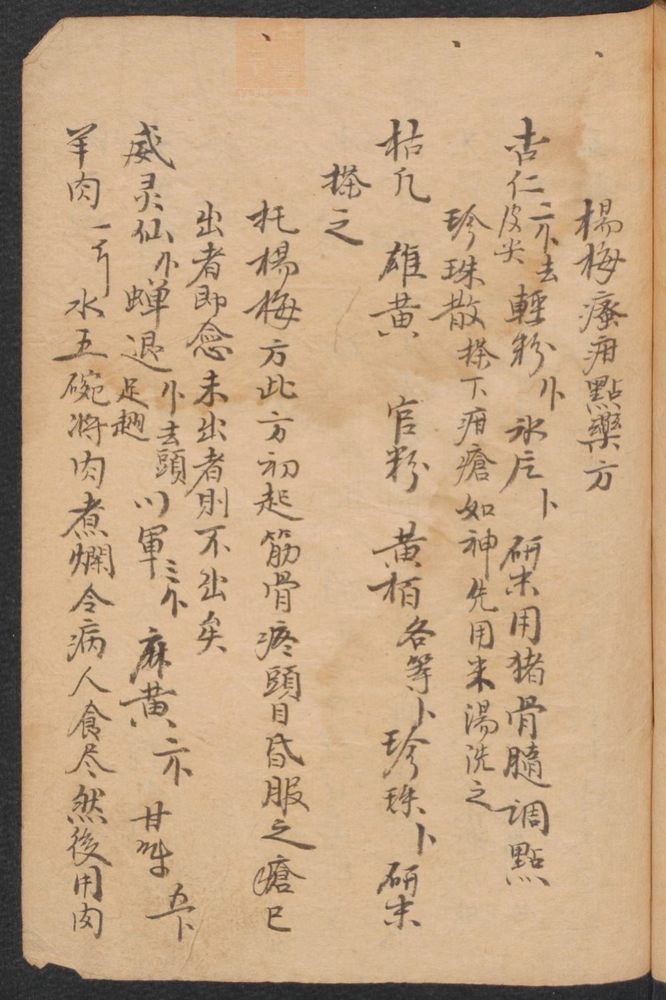 楊梅瘡疳點藥方
杏仁二个去皮尖 輕粉 氷片 研末用猪骨髓調點
珍珠散 搽下疳瘡如神先用米湯洗之
枯凡 雄黃 官粉 黃栢各等 珍珠 研末
搽之
托楊梅方此方初起筋骨疼頭目昏服之瘡已
出者即愈未出者則不出矣
威灵仙 蟬退 去頭足翅 川軍三 麻黃 甘草五
羊肉一斤 水五碗將肉煮爛令病人食尽然後用肉